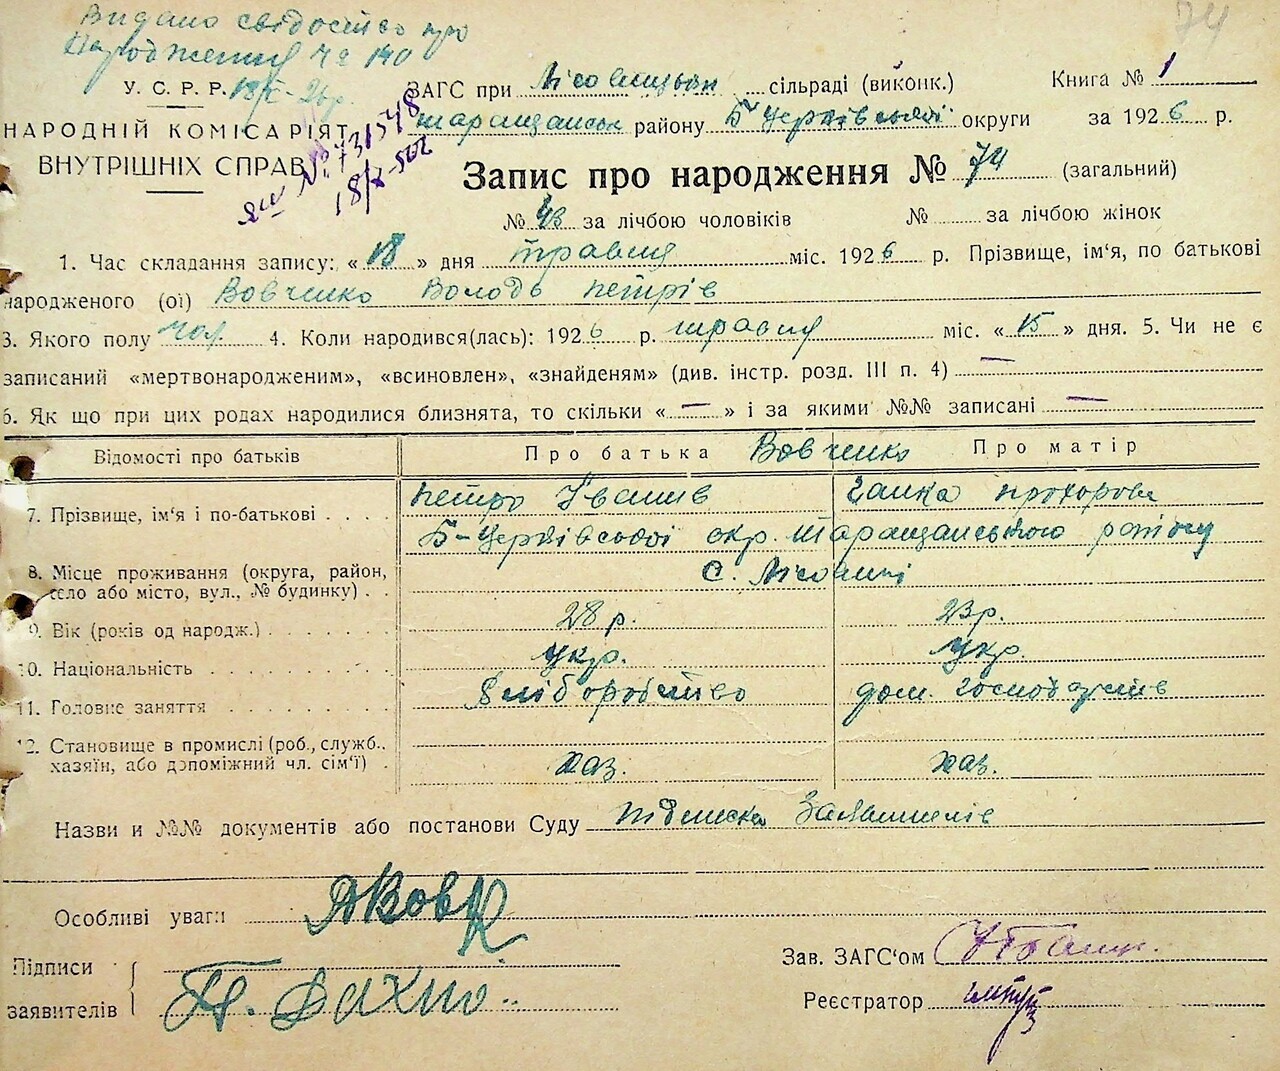 74
Видано свідоцтво про
народження № 140
18/X-26р.
У. С. Р. Р.
НАРОДНІЙ КОМІСАРІЯТ
ВНУТРІШНІХ СПРАВ
18/X-50
ЗАГС при сільраді (виконк.) Книга № 1
Таращанськ району Б Церківської округи за 1926 р.
Запис про народження № 74 (загальний)
№ 43 за лічбою чоловіків № за лічбою жінок
1. Час складання запису: «18» дня травня міс. 1926 р. Прізвище, ім'я, по батькові
народженого (ої) Вовченко Володь Петрів
3. Якого полу чол. 4. Коли народився(лась): 1926 р. травня міс. «15» дня. 5. Чи не є
записаний «мертвонародженим», «всиновлен», «знайденям» (див. інстр. розд. III п. 4) —
6. Як що при цих родах народилися близнята, то скільки «—» і за якими №№ записані —
Відомості про батьків Про батька Вовченко Про матір
7. Прізвище, ім'я і по-батькові Петро Іванів Ганка Прохорова
Б-Церківської окр. Таращанського району
8. Місце проживання (округа, район, село або місто, вул., № будинку) с. Лісовичі
9. Вік (років од народж.) 28 р. 23 р.
10. Національність укр. укр.
11. Головне заняття хліборобство дом. господарств
12. Становище в промислі (роб., служб., хазяїн, або допоміжний чл. сім'ї) хаз. хаз.
Назви и №№ документів або постанови Суду підписка заявителів
Особливі уваги
Підписи
заявителів П. Дахно
Зав. ЗАГС'ом
Реєстратор